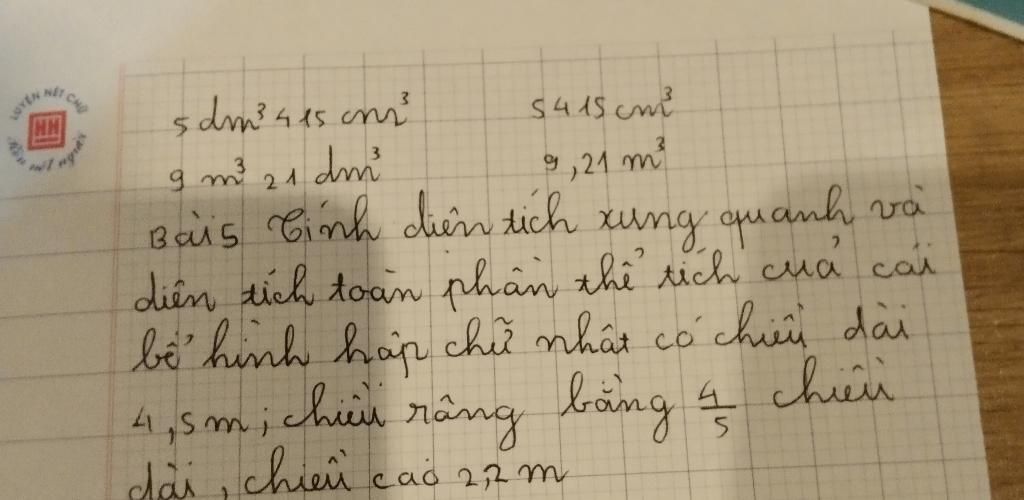 LUYỆN NÉT CHỮ
NH
Rèn nết người
5 dm³ 415 cm³ 5415 cm³
9 m³ 21 dm³ 9,21 m³
Bài 5 Tính diên tích xung quanh và
diên tích toàn phần thể tích của cái
bể hình hâp chữ nhât có chiều dài
4,5m; chiều râng bằng 4/5 chiều
dài, chiều cao 2,2 m